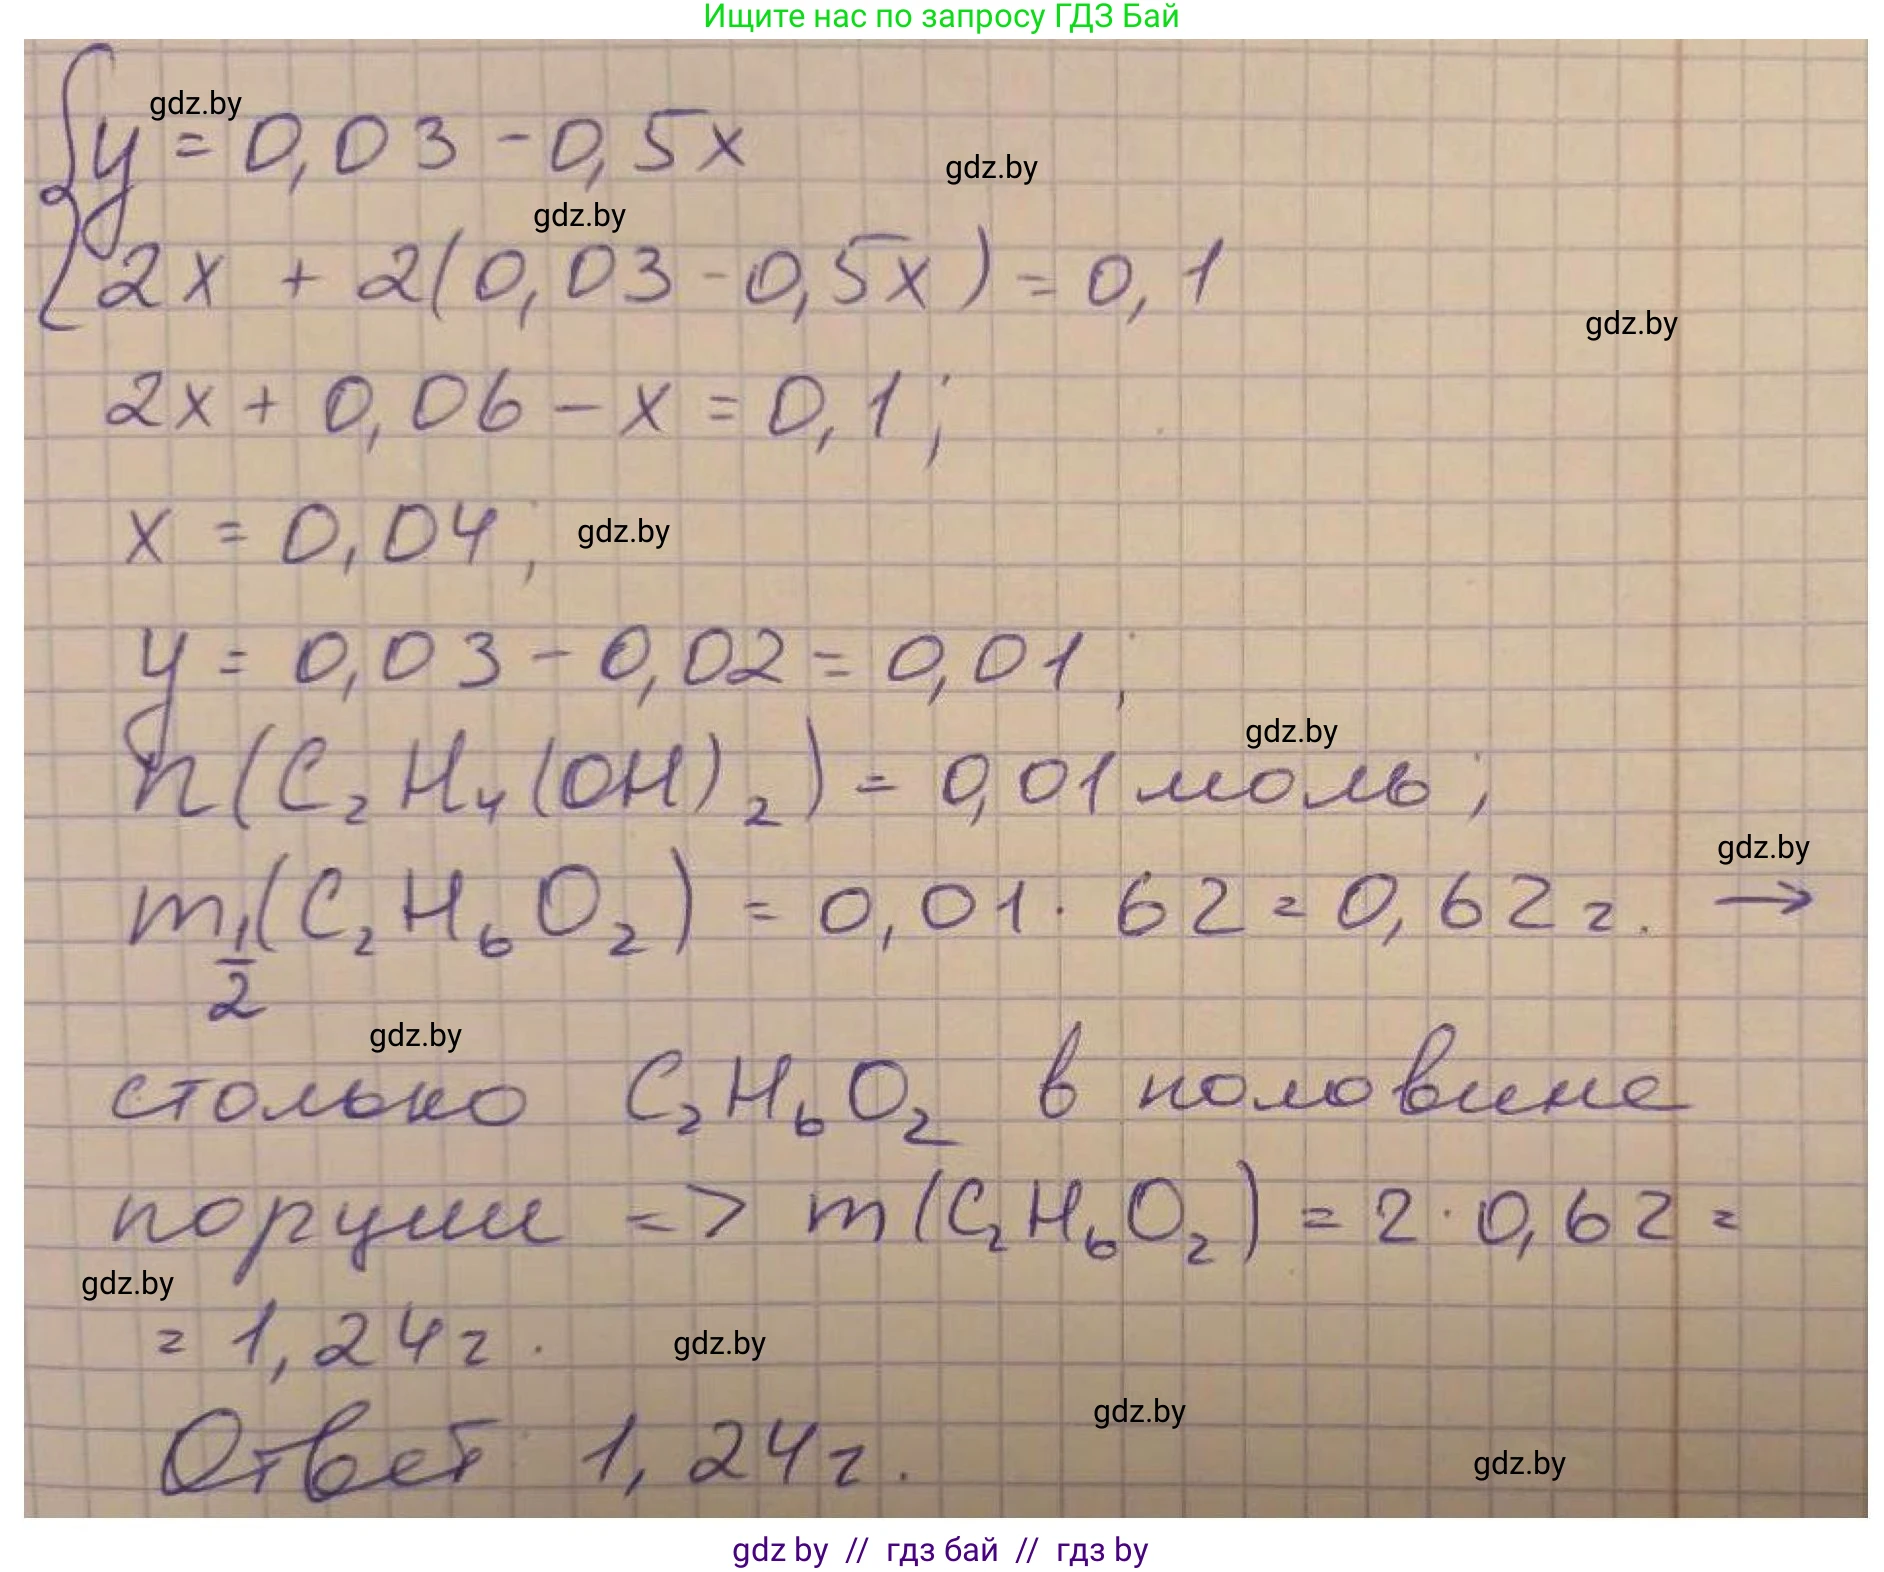 Ищите нас по запросу ГДЗ Бай
gdz.by
y = 0,03 - 0,5x
gdz.by
gdz.by
2x + 2(0,03 - 0,5x) = 0,1
gdz.by
2x + 0,06 - x = 0,1;
x = 0,04; gdz.by
y = 0,03 - 0,02 = 0,01;
gdz.by
n(C₂H₄(OH)₂) = 0,01 моль;
gdz.by
m 1/2 (C₂H₆O₂) = 0,01 · 62 = 0,62 г. →
gdz.by
столько C₂H₆O₂ в половине
порции => m(C₂H₆O₂) = 2 · 0,62 =
gdz.by
= 1,24 г.
gdz.by
gdz.by
Ответ: 1,24 г.
gdz.by
gdz by // гдз бай // гдз by